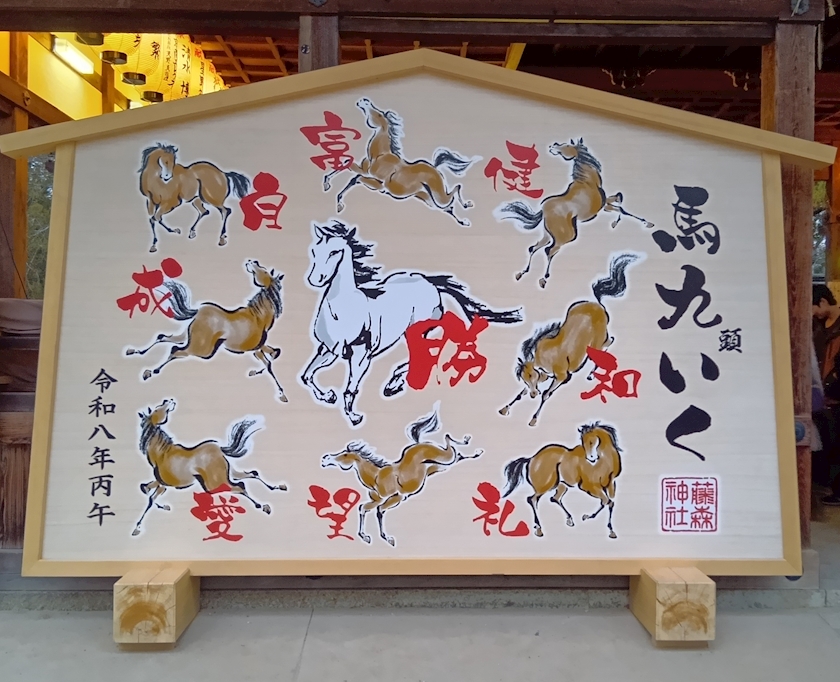 馬九頭いく
藤森
神社
健
富
白
和
勝
成
礼
望
愛
令和八年丙午